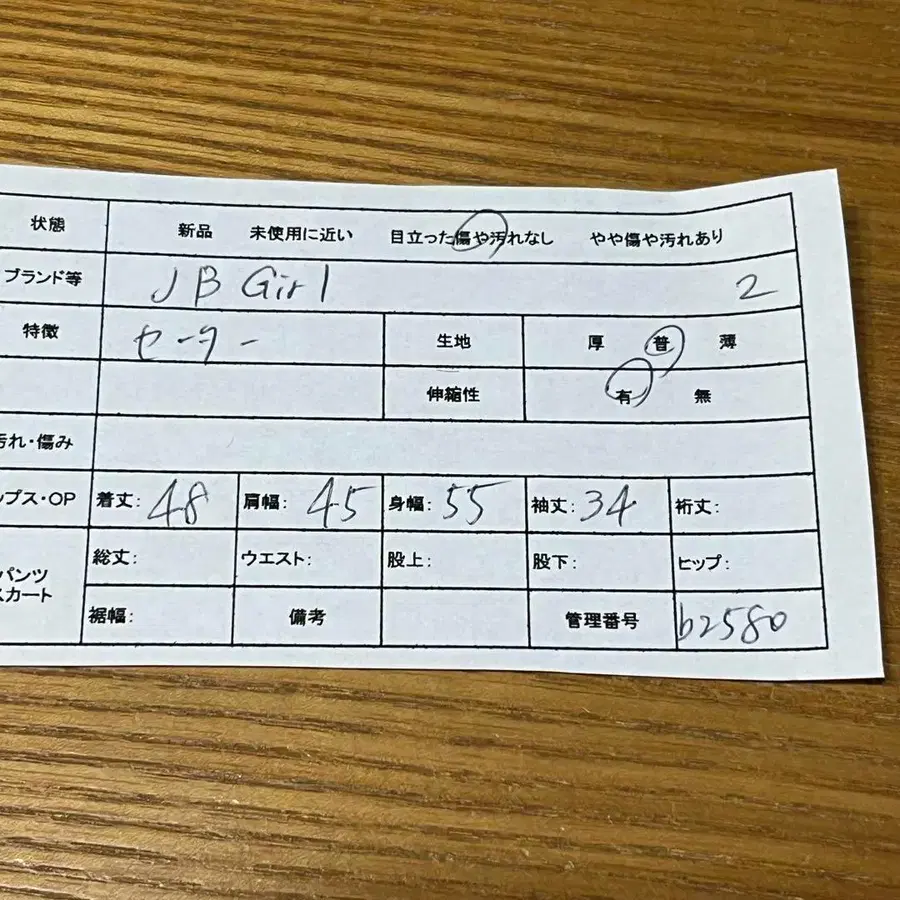 状態 新品 未使用に近い 目立った傷や汚れなし やや傷や汚れあり
ブランド等 JB Girl 2
特徴 セーター 生地 厚 普 薄
伸縮性 有 無
汚れ・傷み
ップス・OP 着丈: 48 肩幅: 45 身幅: 55 袖丈: 34 裄丈:
パンツ 総丈: ウエスト: 股上: 股下: ヒップ:
スカート
裾幅: 備考 管理番号 b2580